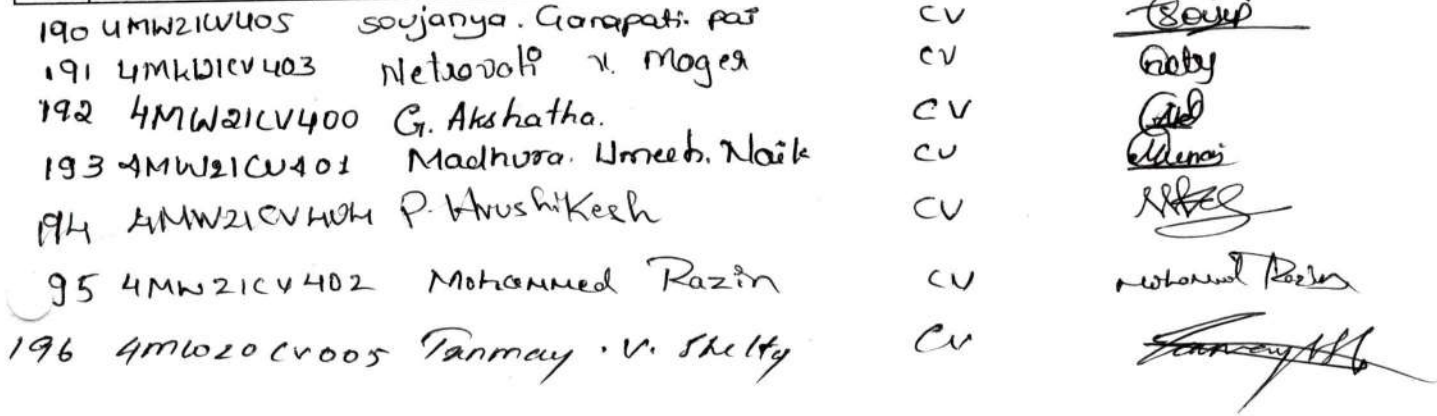 190 4MW21CV405 soujanya. Ganapati. pai CV
191 4MW21CV403 Netravati V. Moger CV
192 4MW21CV400 G. Akshatha. CV
193 4MW21CV401 Madhura. Umesh. Naik CV
194 4MW21CV404 P. Hrushikesh CV
95 4MW21CV402 Mohammed Razin CV Mohammed Razin
196 4MW20CV005 Tanmay . V. Shetty CV